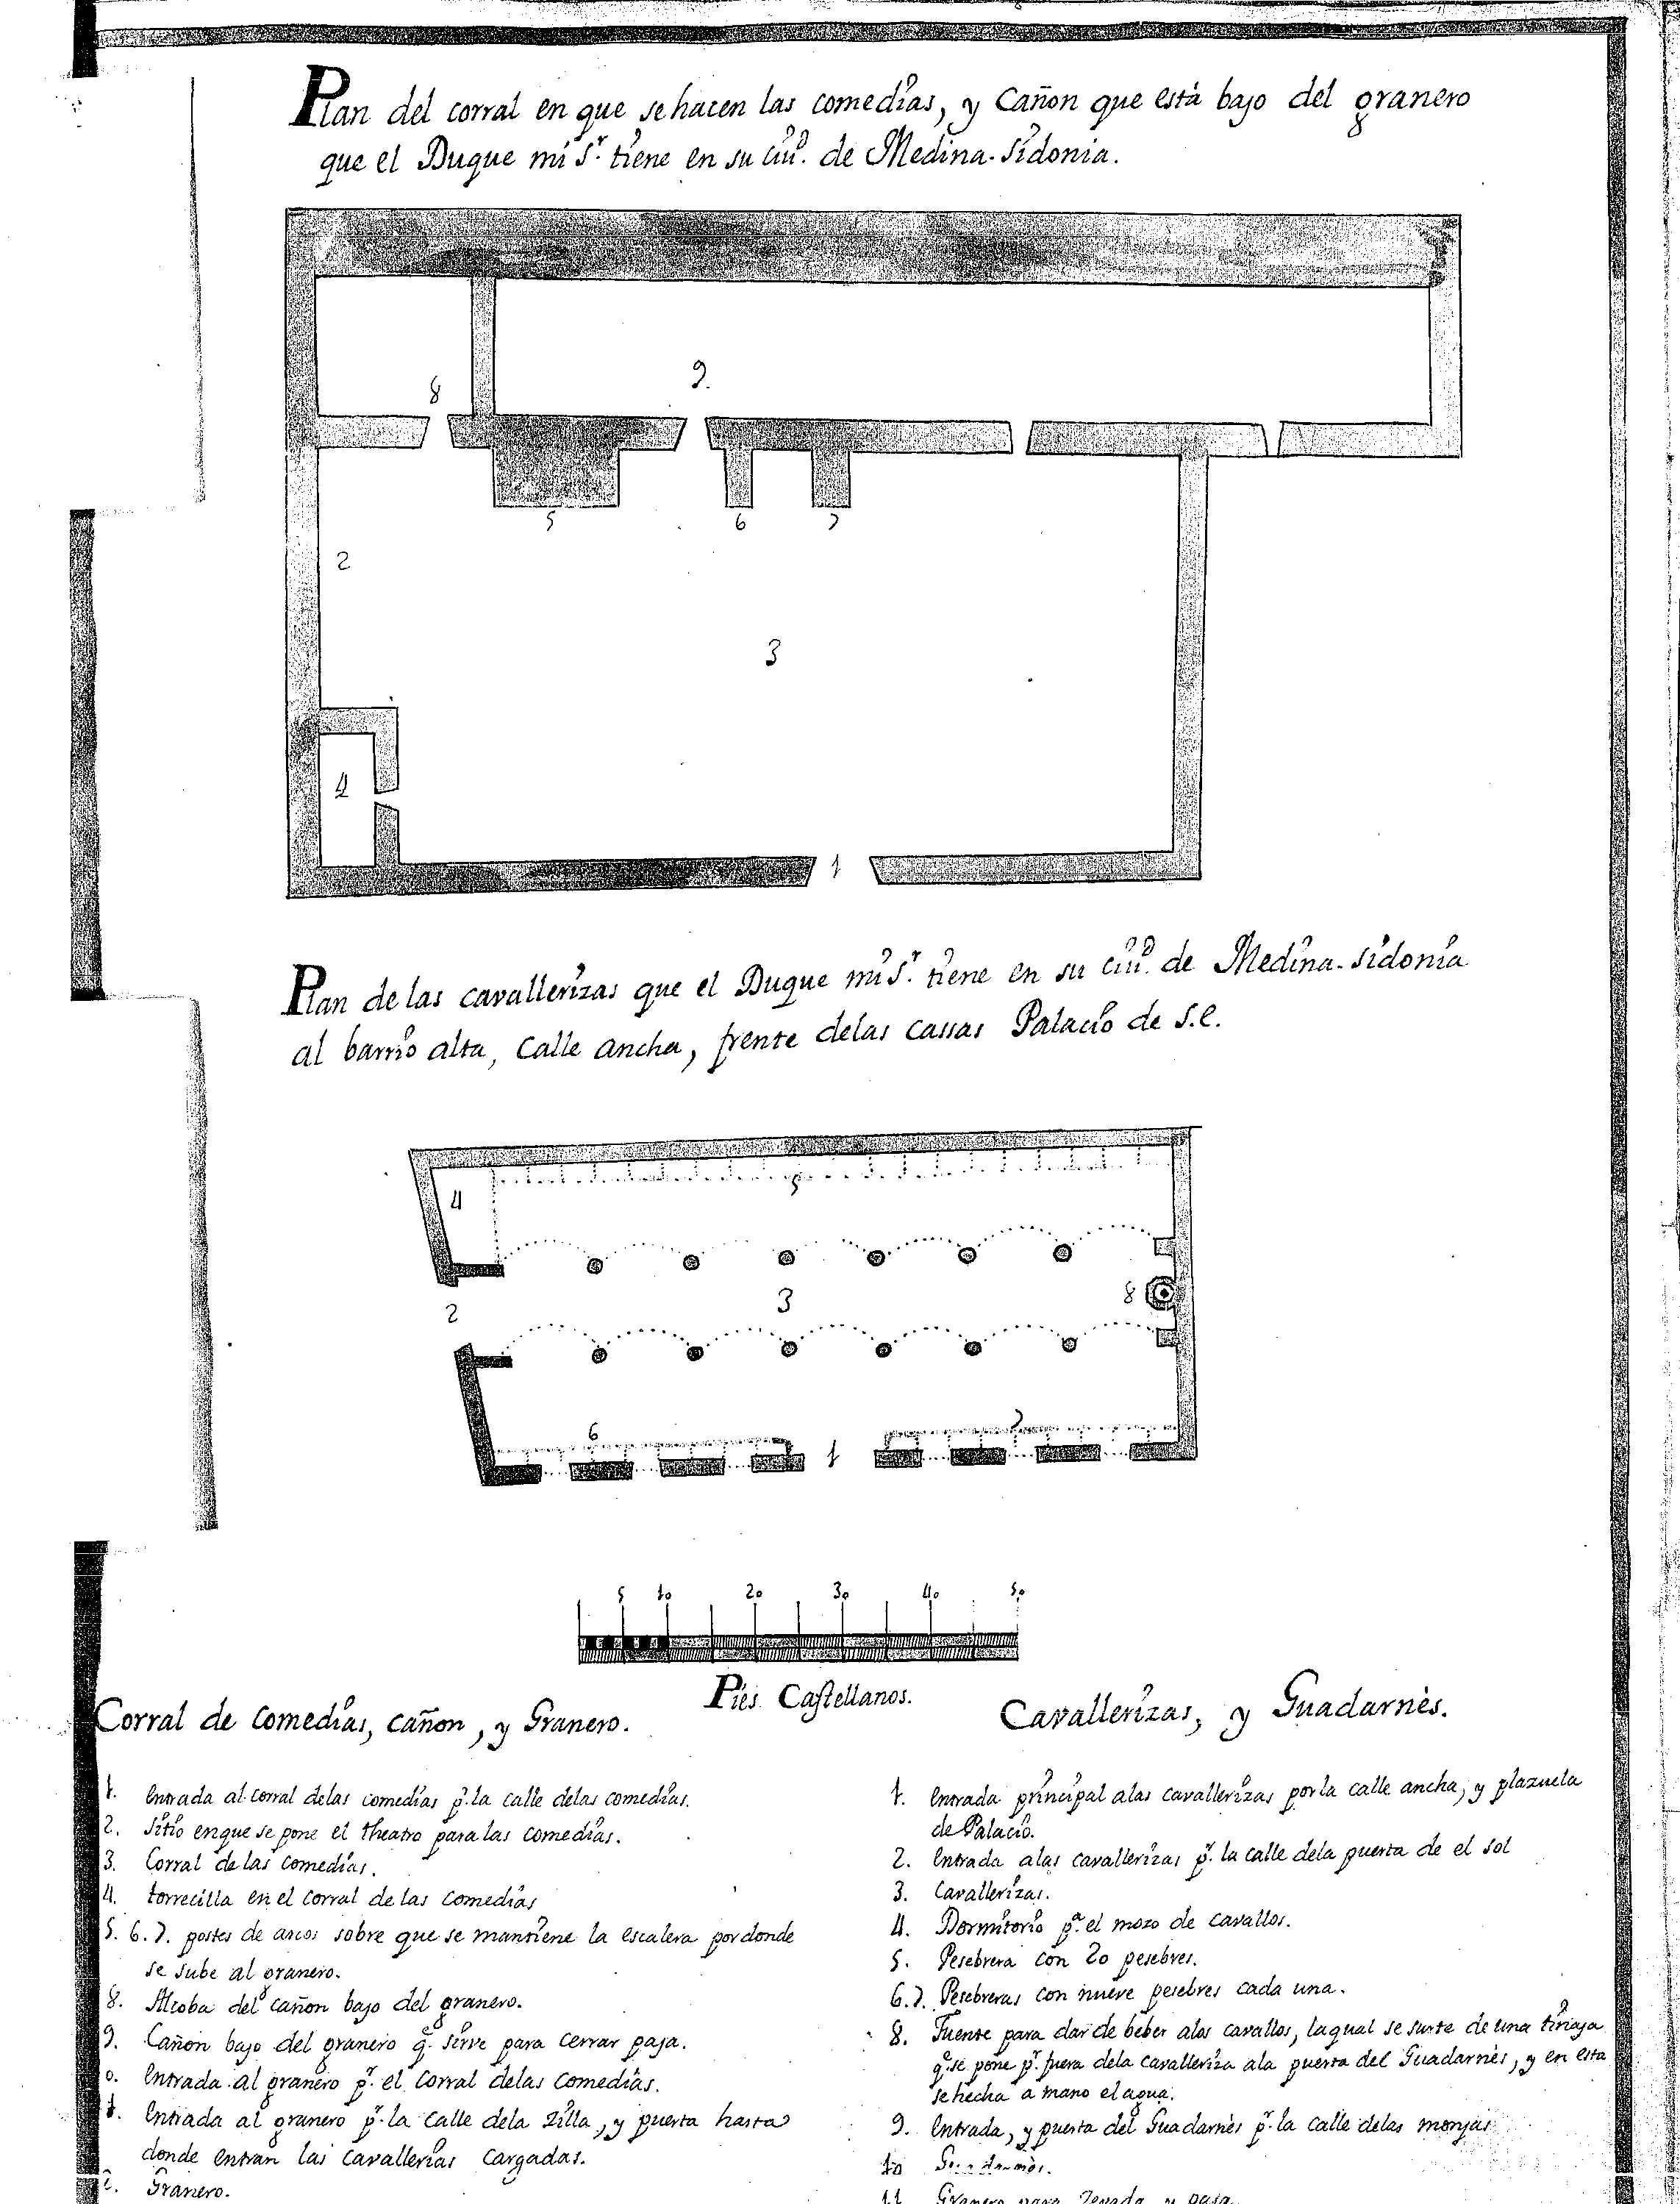 Plan del corral en que se hacen las comedias, y Cañon que està bajo del granero
que el Duque mi S.r tiene en su ciu.d de Medina-Sidonia.
8
9.
5
6
7
2
3
4
1
Plan de las cavallerizas que el Duque mi S.r tiene en su ciu.d de Medina-Sidonia
al barrio alta, Calle ancha, frente delas cassas Palacio de S.E.
4
5
2
3
8
6
7
1
5 10 20 30 40 50
Pies Castellanos.
Corral de Comedias, cañon, y Granero.
1. Entrada al corral delas comedias p.r la calle delas comedias.
2. Sitio enque se pone el theatro para las comedias.
3. Corral de las Comedias.
4. torrecilla en el corral de las Comedias
5. 6. 7. postes de arcos sobre que se mantiene la escalera pordonde
se sube al granero.
8. Alcoba del cañon bajo del granero.
9. Cañon bajo del granero q.e sirve para cerrar paja.
0. Entrada al granero p.r el Corral delas Comedias.
1. Entrada al granero p.r la Calle dela Zilla, y puerta hasta
donde entran las Cavallerias Cargadas.
2. Granero.
Cavallerizas, y Guadarnès.
1. Entrada principal alas cavallerizas por la calle ancha, y plazuela
de Palacio.
2. Entrada alas cavallerizas p.r la calle dela puerta de el sol
3. Cavallerizas.
4. Dormitorio p.a el mozo de cavallos.
5. Pesebrera con 20 pesebres.
6.7. Pesebreras con nueve pesebres cada una.
8. Fuente para dar de beber alos cavallos, laqual se surte de una tinaja
q.e se pone p.r fuera dela cavalleriza ala puerta del Guadarnès, y en esta
se hecha a mano el agua.
9. Entrada, y puerta del Guadarnès p.r la calle delas monjas
10
11 Granero para Zevada, y paja.